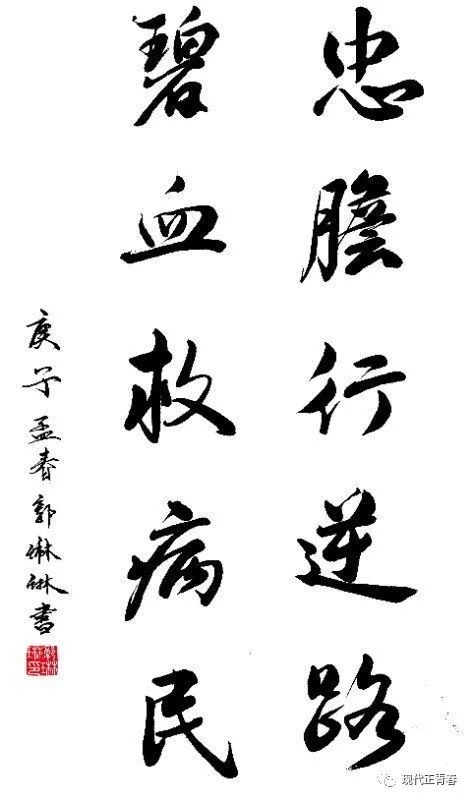 忠膽行逆路
碧血救病民
庚子孟春郭琳琳書
现代正青春